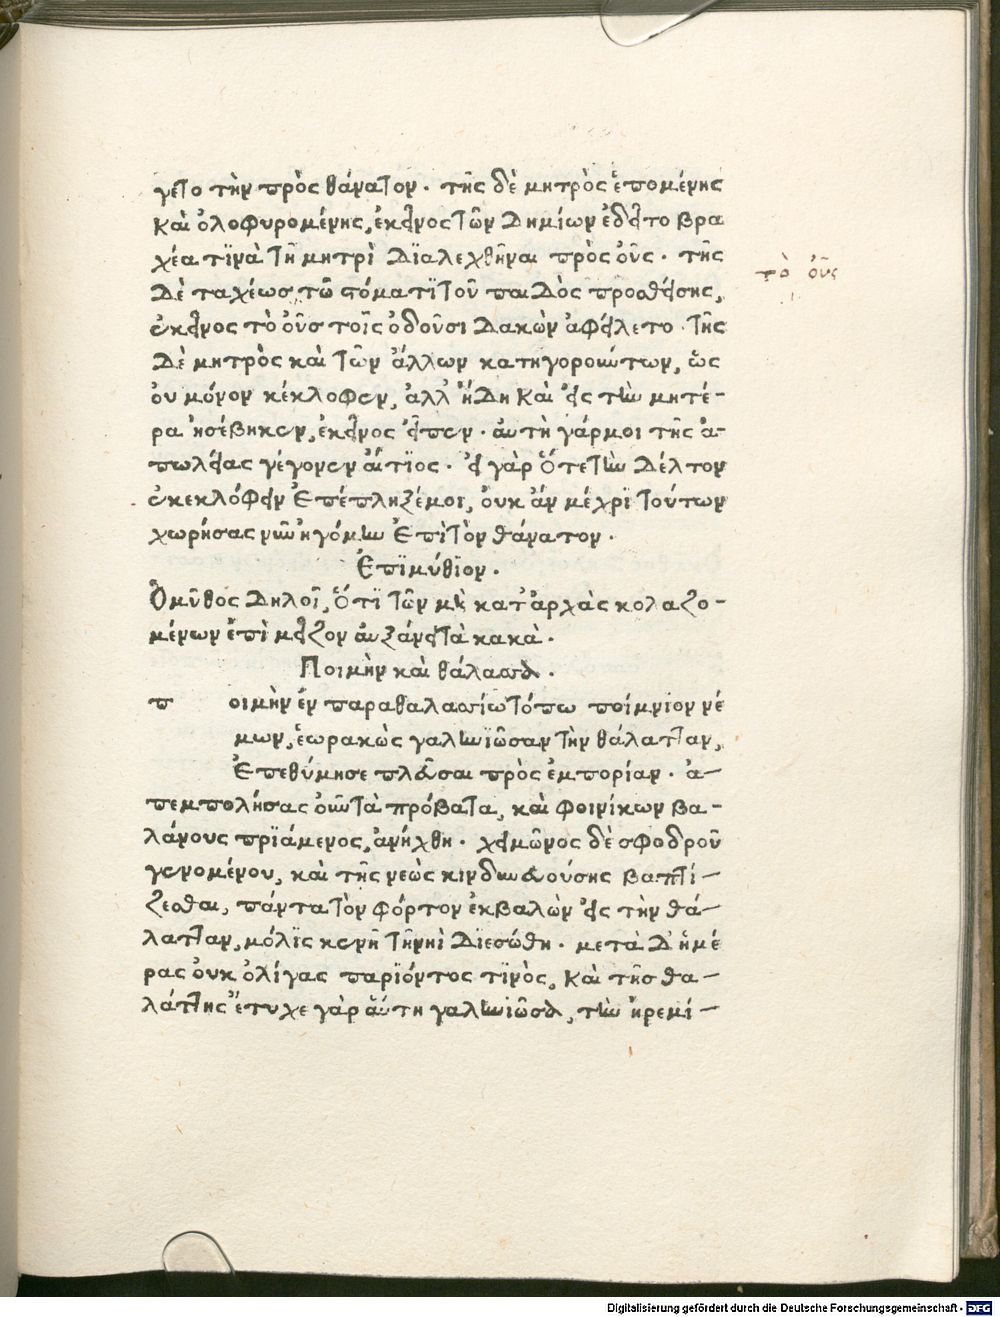 γετο τὴν πρὸς θάνατον. τῆς δὲ μητρὸς ἑπομένης
καὶ ὀλοφυρομένης, ἐκεῖνος τῶν δημίων ἐδεῖτο βρα
χέα τϊνὰ τῆ μητρὶ δϊαλεχθῆναι πρὸς οὖς. τῆς
τὸ οὖς
δὲ ταχέως τῶ στόματϊ τοῦ παιδὸς προσθείσης,
ἐκεῖνος τὸ οὖσ τοῖς ὀδοῦσι δακὼν ἀφείλετο. τῆς
δὲ μητρὸς καὶ τῶν ἄλλων κατηγορούντων, ὡς
ου μόνον κέκλοφεν, ἀλλ' ἤδη καὶ εἰς τὴν μητέ-
ρα ἠσέβηκεν, ἐκεῖνος εἶπεν. ἀυτὴ γάρ μοι τῆς ἀ-
πωλείας γέγονεν ἄιτϊος. εἰ γὰρ ὅτε τὴν δέλτον
ἐκεκλόφειν ἐπέπληξέ μοι, ὀυκ ἀν μέχρϊ τούτων
χωρήσας νῦν ἠγόμην ἐπὶ τὸν θάνατον.
Ἐπϊμύθϊον.
Ὁ μῦθος δηλοῖ, ὅτϊ τῶν μὴ κατ' ἀρχὰς κολαζο-
μένων ἐπὶ μεῖζον ἀυξάνει τὰ κακὰ.
Ποιμὴν καὶ θάλασσα.
π οιμὴν ἐν παραθαλασσίω τόπω ποίμνιον νέ
μων, ἑωρακὼς γαληνϊῶσαν τὴν θάλατταν,
ἐπεθύμησε πλεῦσαι πρὸς ἐμπορίαν. ἀ-
πεμπολήσας οὖν τὰ πρόβατα, καὶ φοινίκων βα-
λάνους πρϊάμενος, ἀνήχθη. χειμῶνος δὲ σφοδροῦ
γενομένου, καὶ τῆς νεὼς κινδυνευούσης βαπτί-
ζεσθαι, πάντα τὸν φόρτον ἐκβαλὼν εἰς τὴν θά-
λατταν, μόλϊς κενῆ τῆ νηὶ διεσώθη. μετὰ δ' ἡμέ
ρας ὀυκ ὀλίγας παρϊόντος τϊνὸς, καὶ τῆσ θα-
λάττης ἔτυχε γὰρ ἄυτη γαληνιῶσα, τὴν ἠρεμί-
Digitalisierung gefördert durch die Deutsche Forschungsgemeinschaft - DFG